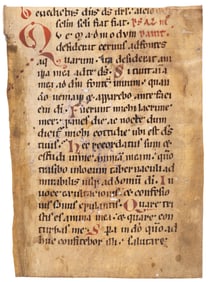 selm seli fiat fiat
desiderat cervus ad fontes
aquarum ita desiderat an
ima mea ad te ds. Sitivit ani
ma mea ad dm fontem vivum quan
do veniam & apparebo ante faci
em di. Fuerunt michi lacrime
mee panes die ac nocte dum
dicit michi cottidie ubi est ds
tuus. Hec recordatus sum &
effudi in me animam meam quo
transibo in locum tabernaculi ad
mirabilis usq ad domu di. In
voce exultationis & confessio
nis sonus epulantis. Quare tris
tis es anima mea & quare con
turbas me. Spera in do qm ad
huc confitebor illi salutare